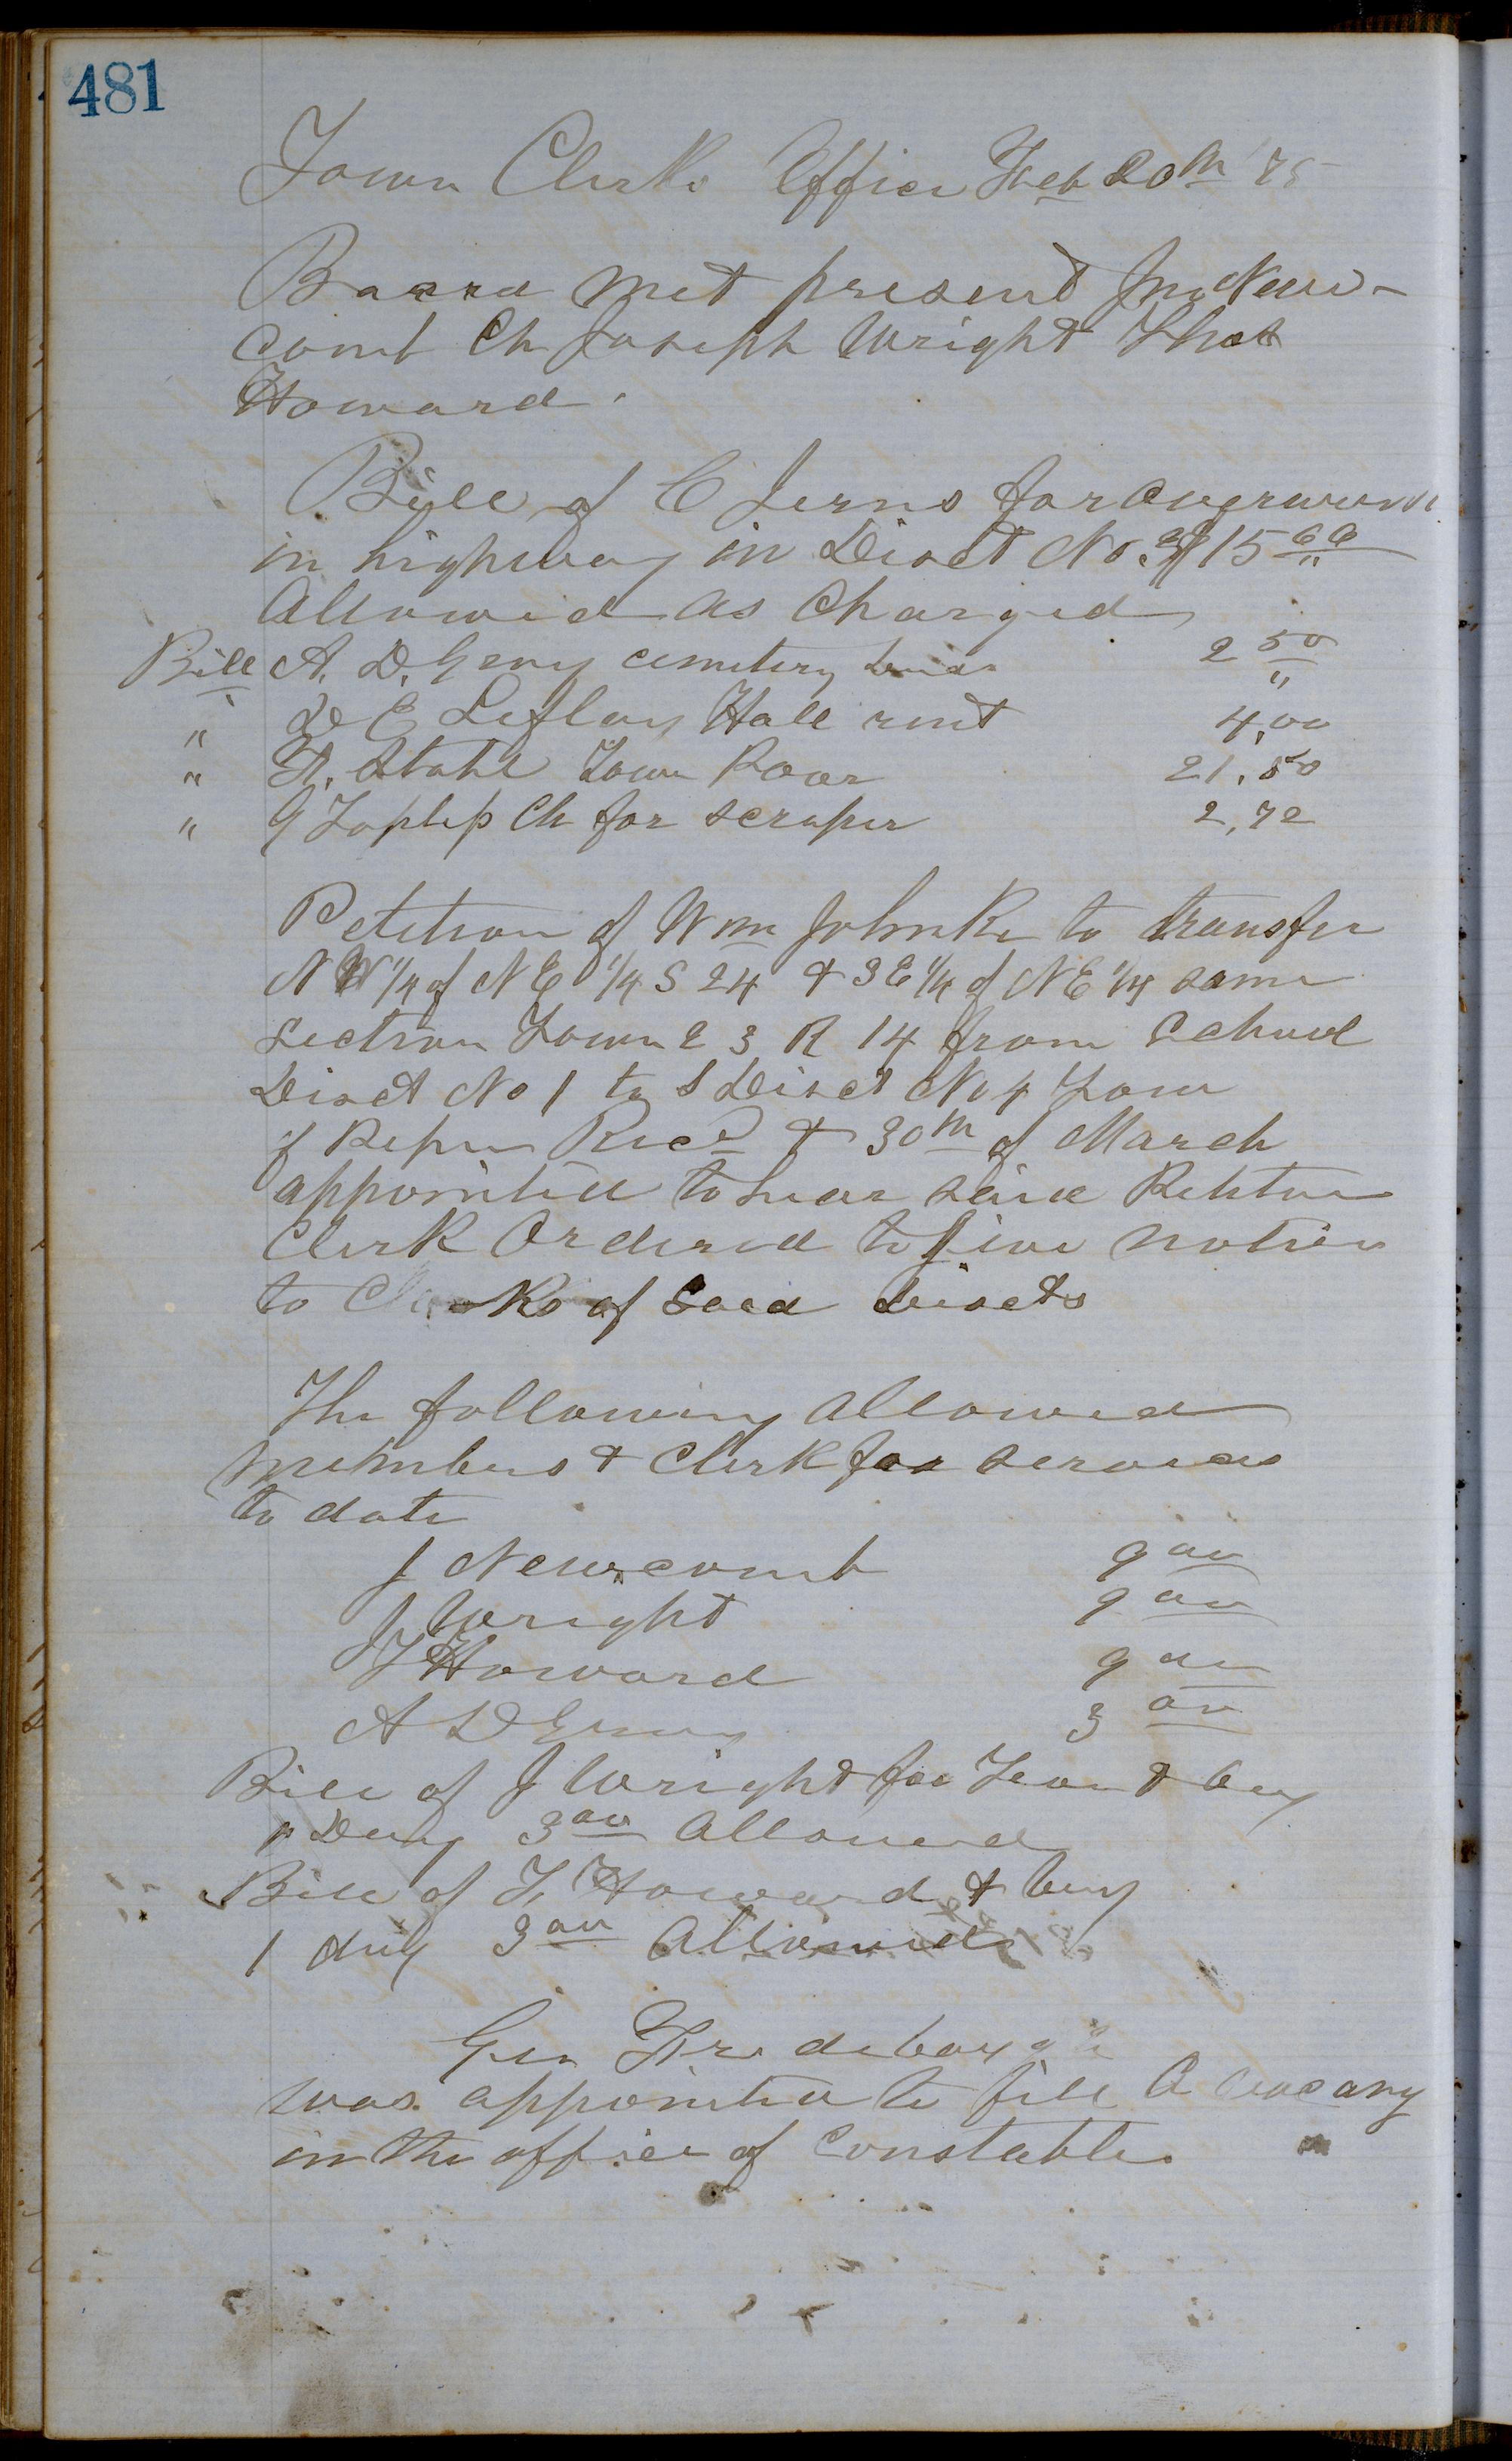 481
Town Clerks Office Feb 20th 75
Board met present Jno New-
comb Ch Joseph Wright Thos
Howard.
Bill of C Jerns for
in highway in Disct No 3 $15 00
Allowed as Charged
Bill A. D. Geny cemetery 2 50
" D E Leflay Hall rent 4,00
" F. Stahl Town Poor 21,50
" G Toplip Ch for scraper 2,72
Petition of Wm Johnke to transfer
N W 1/4 of N E 1/4 S 24 & S E 1/4 of N E 1/4 same
section Town 23 R 14 from School
Disct No 1 to S Disct No 4 Town
of Recd & 30th of March
appointed to hear said Petition
Clerk Ordered to give notice
to Clerks of Said discts
The following allowed
members & Clerk for services
to date
J Newcomb 9 00
J Wright 9 00
T Howard 9 00
A D Geny 3 00
Bill of J Wright for Team & buy
1 Day 3 00 Allowed
Bill of T. Howard & buy
1 day 3 00 Allowed
Geo
was appointed to fill A vacany
in the office of Constable.